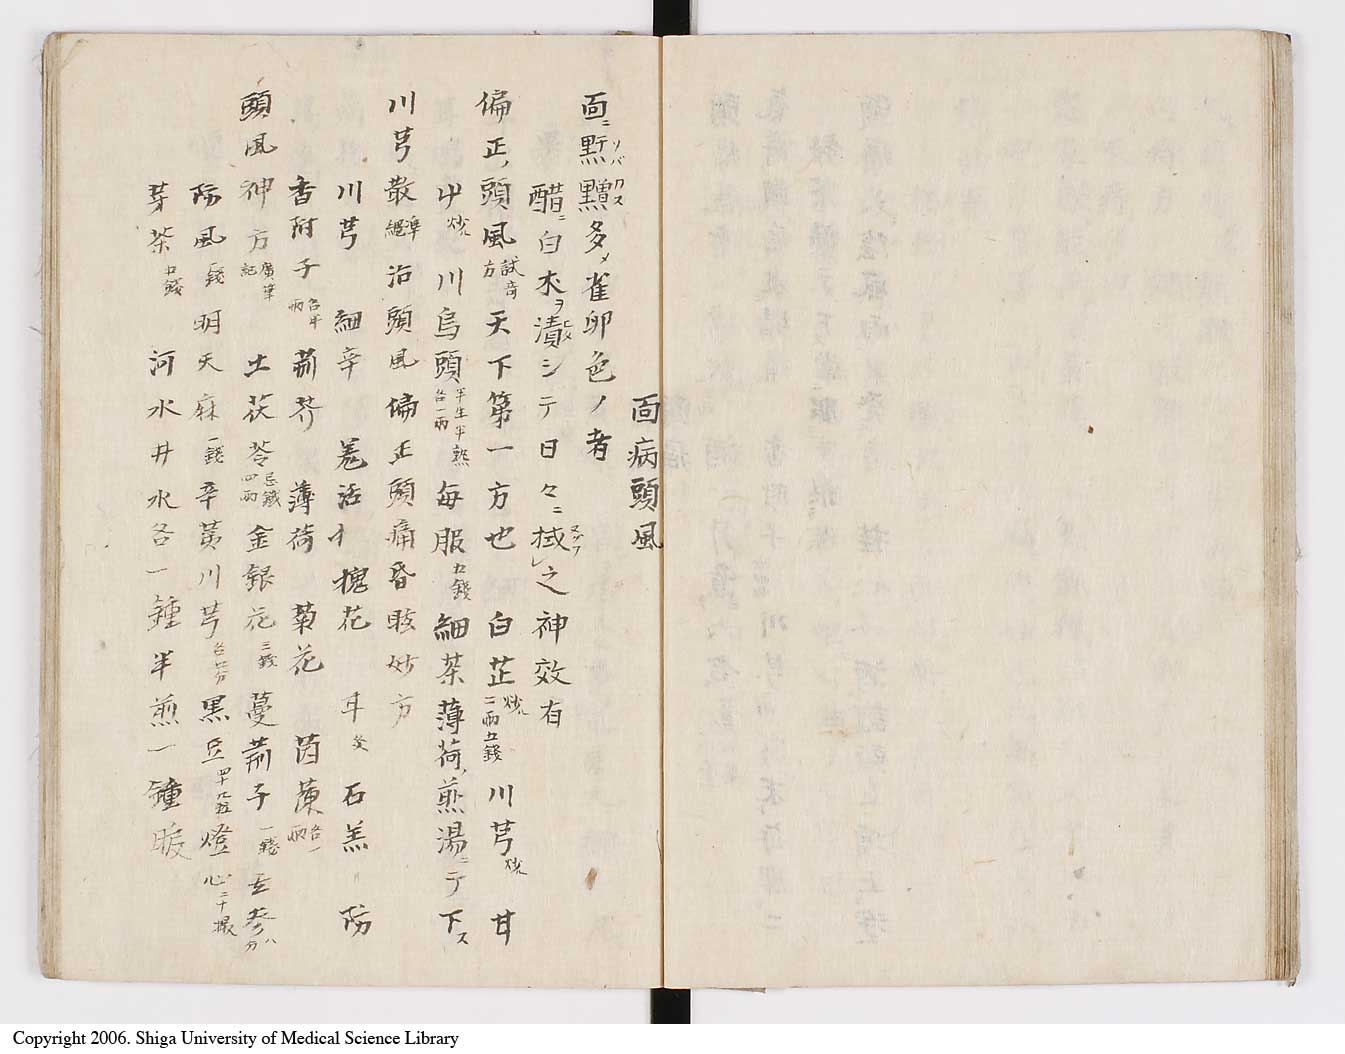 面病頭風
面ニ䵟䵳多〆雀卵色ノ者
醋ニ白朮ヲ漬シテ日々ニ拭之神效有
偏正頭風試奇方天下第一方也 白芷炒二兩五錢 川芎炒 甘
艸炒 川烏頭半生半熟各一兩 每服五錢細茶薄荷煎湯ニテ下ス
川芎散準繩 治頭風偏正頭痛昏眩妙方
川芎 細辛 羗活 槐花 甘艾 石羔 防
香附子各半兩 荊芥 薄荷 菊花 茵蔯各一兩
頭風神方廣筆記 土茯苓忌鐵四兩 金銀花三錢 蔓荊子一錢 玄參八分
防風一錢 明天麻一錢 辛黃川芎各五分 黑豆四十九粒 燈心二十撮
芽茶五錢 河水井水各一鍾半煎一鍾暖
Copyright 2006. Shiga University of Medical Science Library